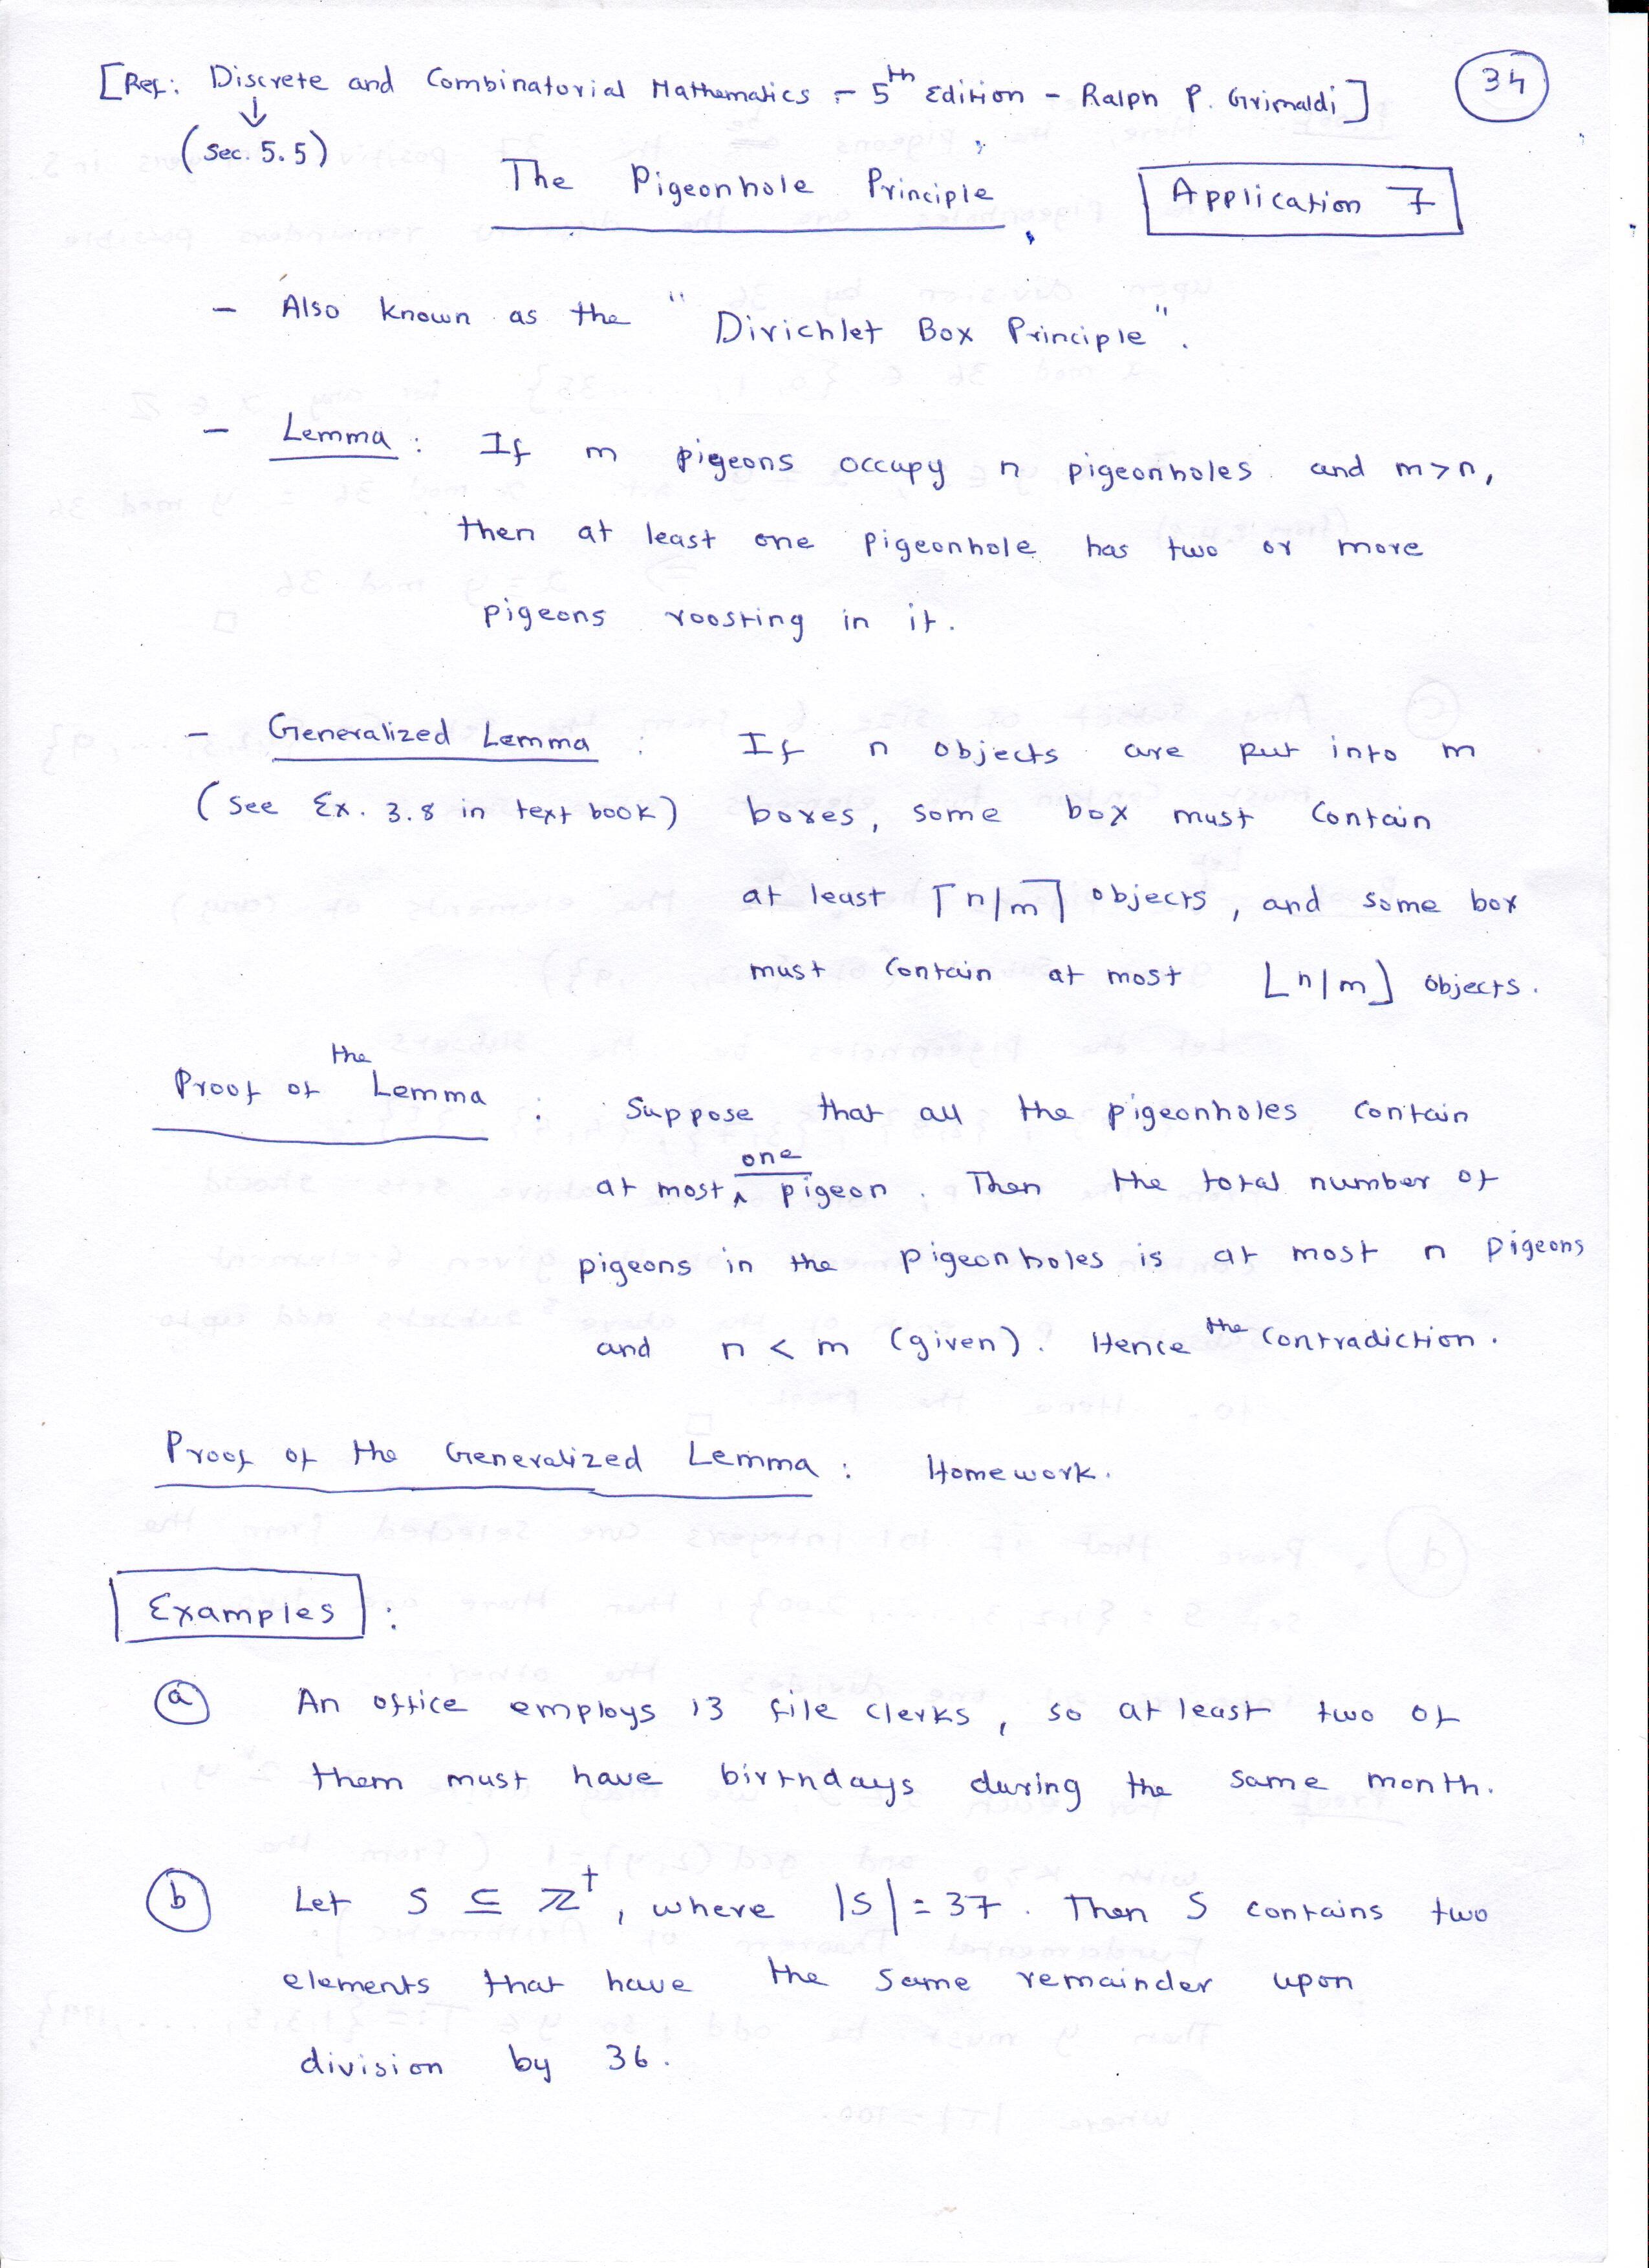 [Ref: Discrete and Combinatorial Mathematics - 5th Edition - Ralph P. Grimaldi]
34
↓
(Sec. 5.5)
The Pigeonhole Principle
Application 7
- Also known as the "Dirichlet Box Principle".
- Lemma : If m pigeons occupy n pigeonholes and m>n,
then at least one pigeonhole has two or more
pigeons roosting in it.
- Generalized Lemma : If n objects are put into m
(see Ex. 3.8 in text book) boxes, some box must contain
at least ⌈n/m⌉ objects, and some box
must contain at most ⌊n/m⌋ objects.
Proof of the Lemma : Suppose that all the pigeonholes contain
at most one pigeon. Then the total number of
pigeons in the pigeonholes is at most n pigeons
and n < m (given). Hence the contradiction.
Proof of the Generalized Lemma : Homework.
Examples :
(a) An office employs 13 file clerks, so at least two of
them must have birthdays during the same month.
(b) Let S ⊆ ℤ⁺, where |S| = 37. Then S contains two
elements that have the same remainder upon
division by 36.